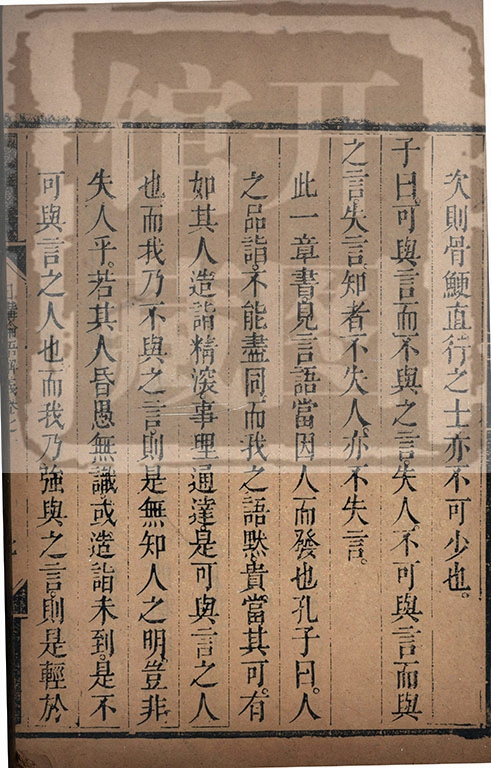 次則骨鯁直行之士亦不可少也。
子曰。可與言而不與之言失人。不可與言而與
之言。失言。知者不失人。亦不失言。
此一章書。見言語當因人而發也。孔子曰。人
之品詣。不能盡同。而我之語默。貴當其可。有
如其人造詣精深。事理通達。是可與言之人
也。而我乃不與之言。則是無知人之明。豈非
失人乎。若其人昏愚無識。或造詣未到。是不
可與言之人也。而我乃強與之言。則是輕於